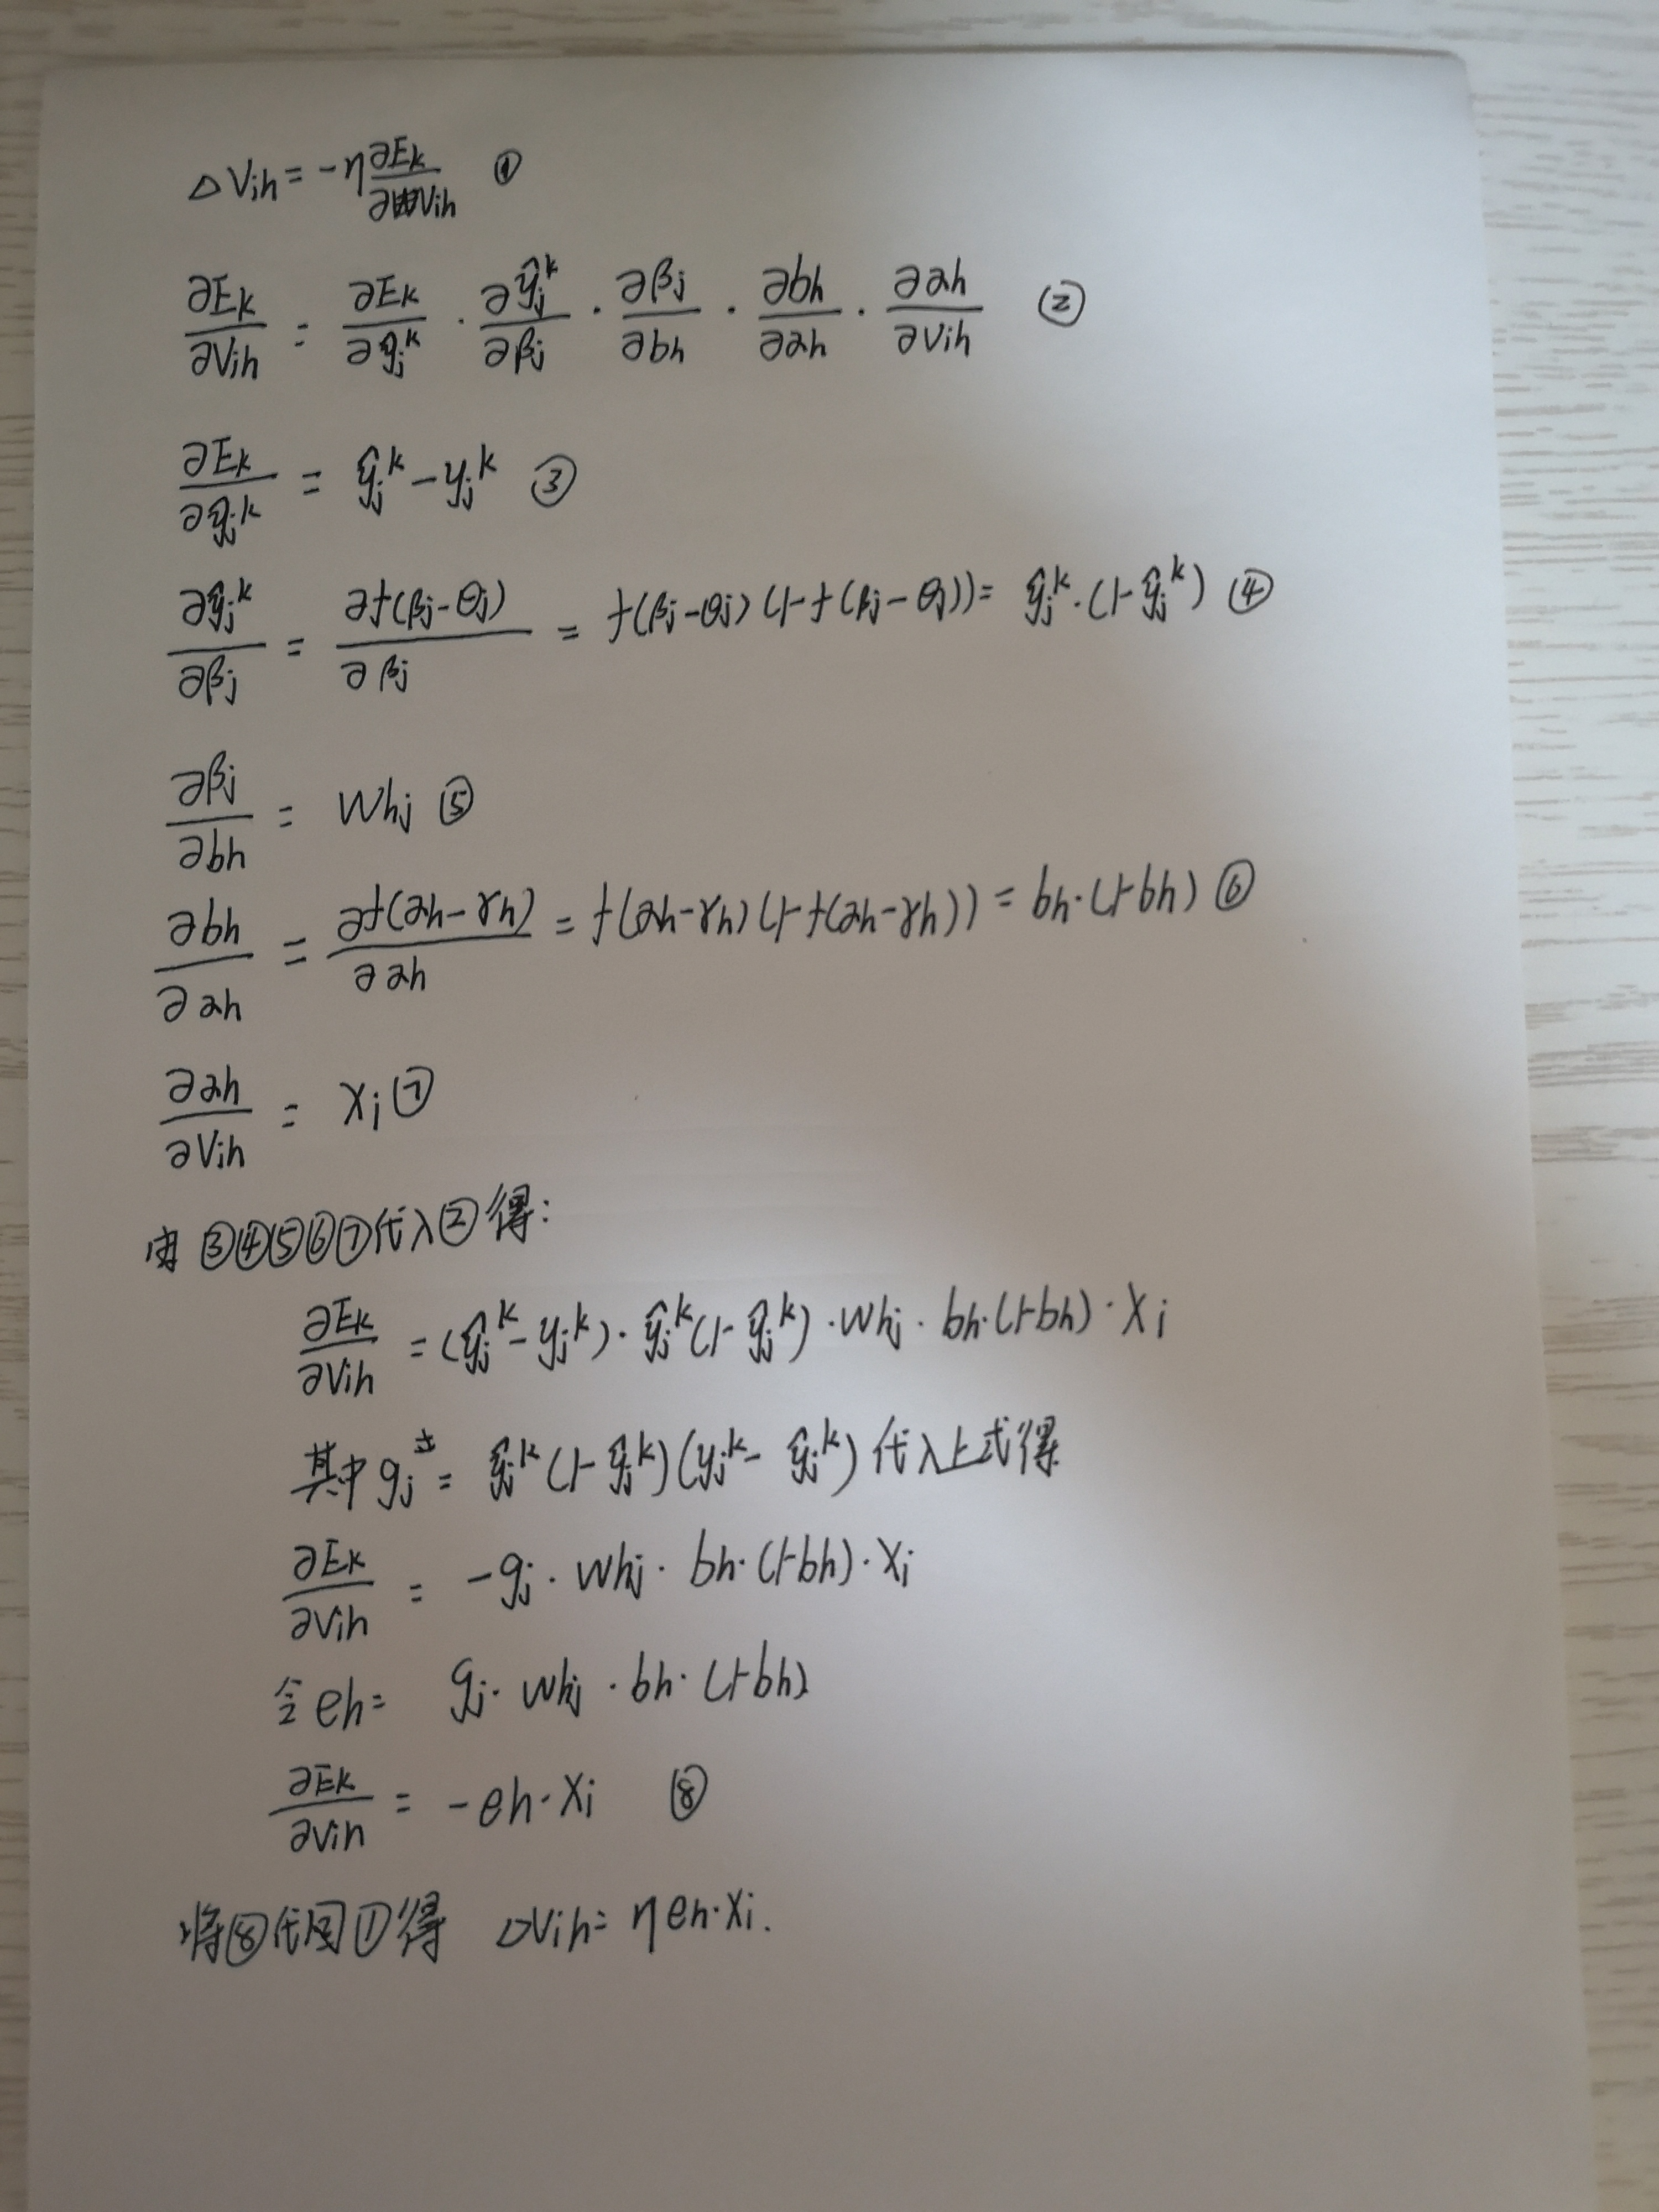 △Vih = -η ∂Ek/∂Vih ①
∂Ek/∂Vih = ∂Ek/∂ŷj^k · ∂ŷj^k/∂βj · ∂βj/∂bh · ∂bh/∂αh · ∂αh/∂Vih ②
∂Ek/∂ŷj^k = ŷj^k - yj^k ③
∂ŷj^k/∂βj = ∂f(βj-θj)/∂βj = f(βj-θj)(1-f(βj-θj)) = ŷj^k·(1-ŷj^k) ④
∂βj/∂bh = Whj ⑤
∂bh/∂αh = ∂f(αh-γh)/∂αh = f(αh-γh)(1-f(αh-γh)) = bh·(1-bh) ⑥
∂αh/∂Vih = Xi ⑦
③④⑤⑥⑦代入②得:
∂Ek/∂Vih = (ŷj^k - yj^k)·ŷj^k(1-ŷj^k)·Whj·bh·(1-bh)·Xi
其中gj = ŷj^k(1-ŷj^k)(yj^k-ŷj^k)代入上式得
∂Ek/∂Vih = -gj·Whj·bh·(1-bh)·Xi
令eh = gj·Whj·bh·(1-bh)
∂Ek/∂Vih = -eh·Xi ⑧
将⑧代回①得 △Vih = ηeh·Xi.